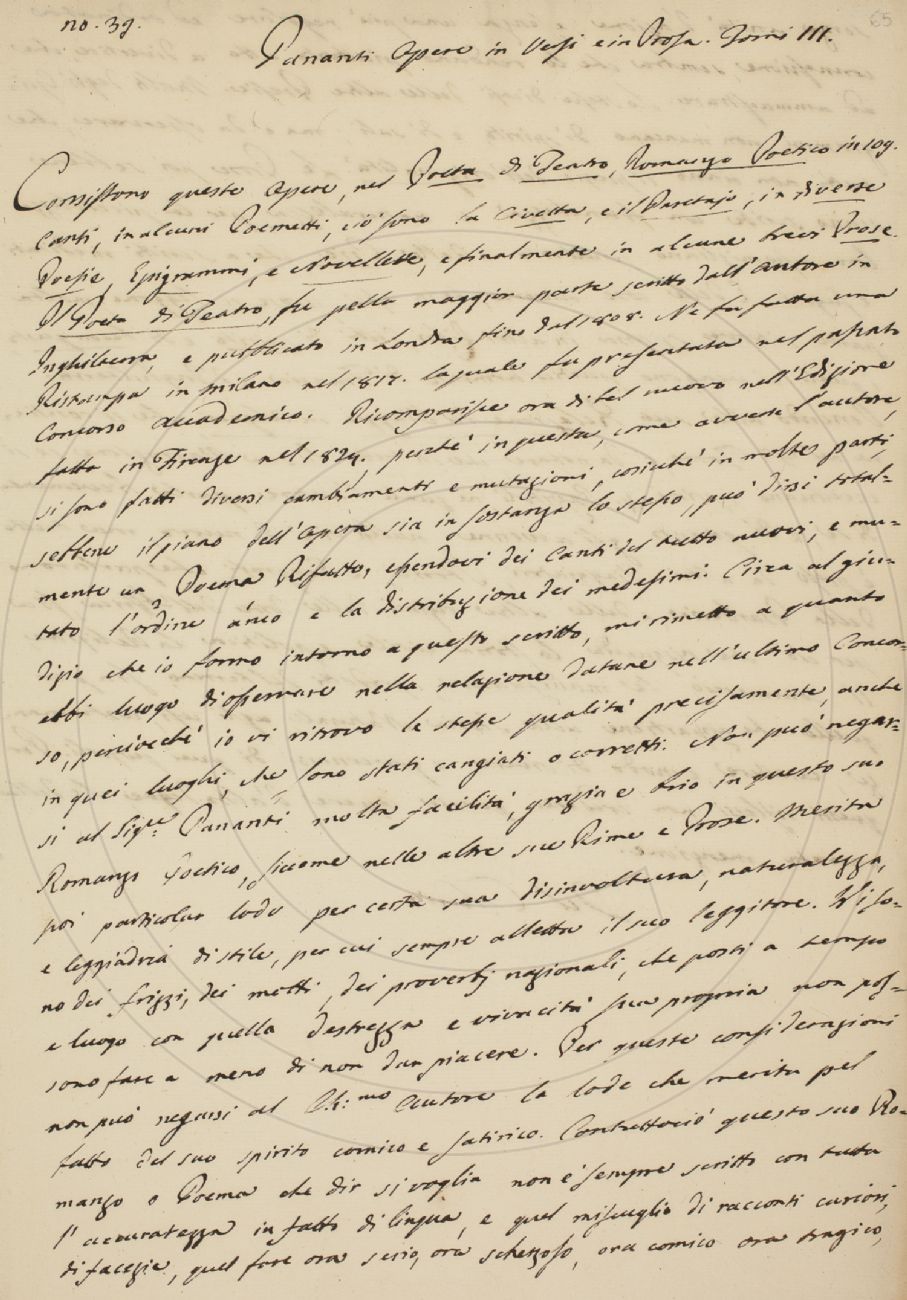 no. 39.
65
Pananti Opere in Versi e in Prosa. Tomi III.
Consistono queste Opere, nel Poeta di Teatro, Romanzo Poetico in 109.
Canti, in alcuni Poemetti, ciò sono la Civetta, e il Paretajo, in diverse
Poesie, Epigrammi, e Novellette, e finalmente in alcune brevi Prose.
Il Poeta di Teatro, fu pella maggior parte scritto dall'Autore in
Inghilterra, e pubblicato in Londra fin dal 1808. Ne fu fatta una
Ristampa in Milano nel 1817. la quale fu presentata nel passato
Concorso accademico. Ricomparisce ora di bel nuovo nell'Edizione
fatta in Firenze nel 1824., perchè in questa, come avverte l'autore,
si sono fatti diversi cambiamenti e mutazioni, cosicchè in molte parti,
sebbene il piano dell'Opera sia in sostanza lo stesso, può dirsi total-
mente un Poema Rifatto, essendovi dei Canti del tutto nuovi, e mu-
tato l'ordine anco e la distribuzione dei medesimi. Circa al giu-
dizio che io formo intorno a questo scritto, mi rimetto a quanto
ebbi luogo di osservare nella relazione datane nell'ultimo Concor-
so, perciocchè io vi ritrovo le stesse qualità precisamente, anche
in quei luoghi, che sono stati cangiati o corretti. Non può negar-
si al Sigre. Pananti molta facilità, grazia e brio in questo suo
Romanzo Poetico, siccome nelle altre sue Rime e Prose. Merita
poi particolar lode per certa sua disinvoltura, naturalezza,
e leggiadria di stile, per cui sempre alletta il suo leggitore. Vi so-
no dei frizzi, dei motti, dei proverbj nazionali, che posti a tempo
e luogo con quella destrezza e vivacità sua propria non pos-
sono fare a meno di non dar piacere. Per queste considerazioni
non può negarsi al Ch:mo Autore la lode che merita pel
fatto del suo spirito comico e satirico. Contuttociò questo suo Ro-
manzo o Poema che dir si voglia non è sempre scritto con tutta
l'accuratezza in fatto di lingua, e quel miscuglio di racconti curiosi,
di facezie, quel fare ora serio, ora scherzoso, ora comico ora tragico,